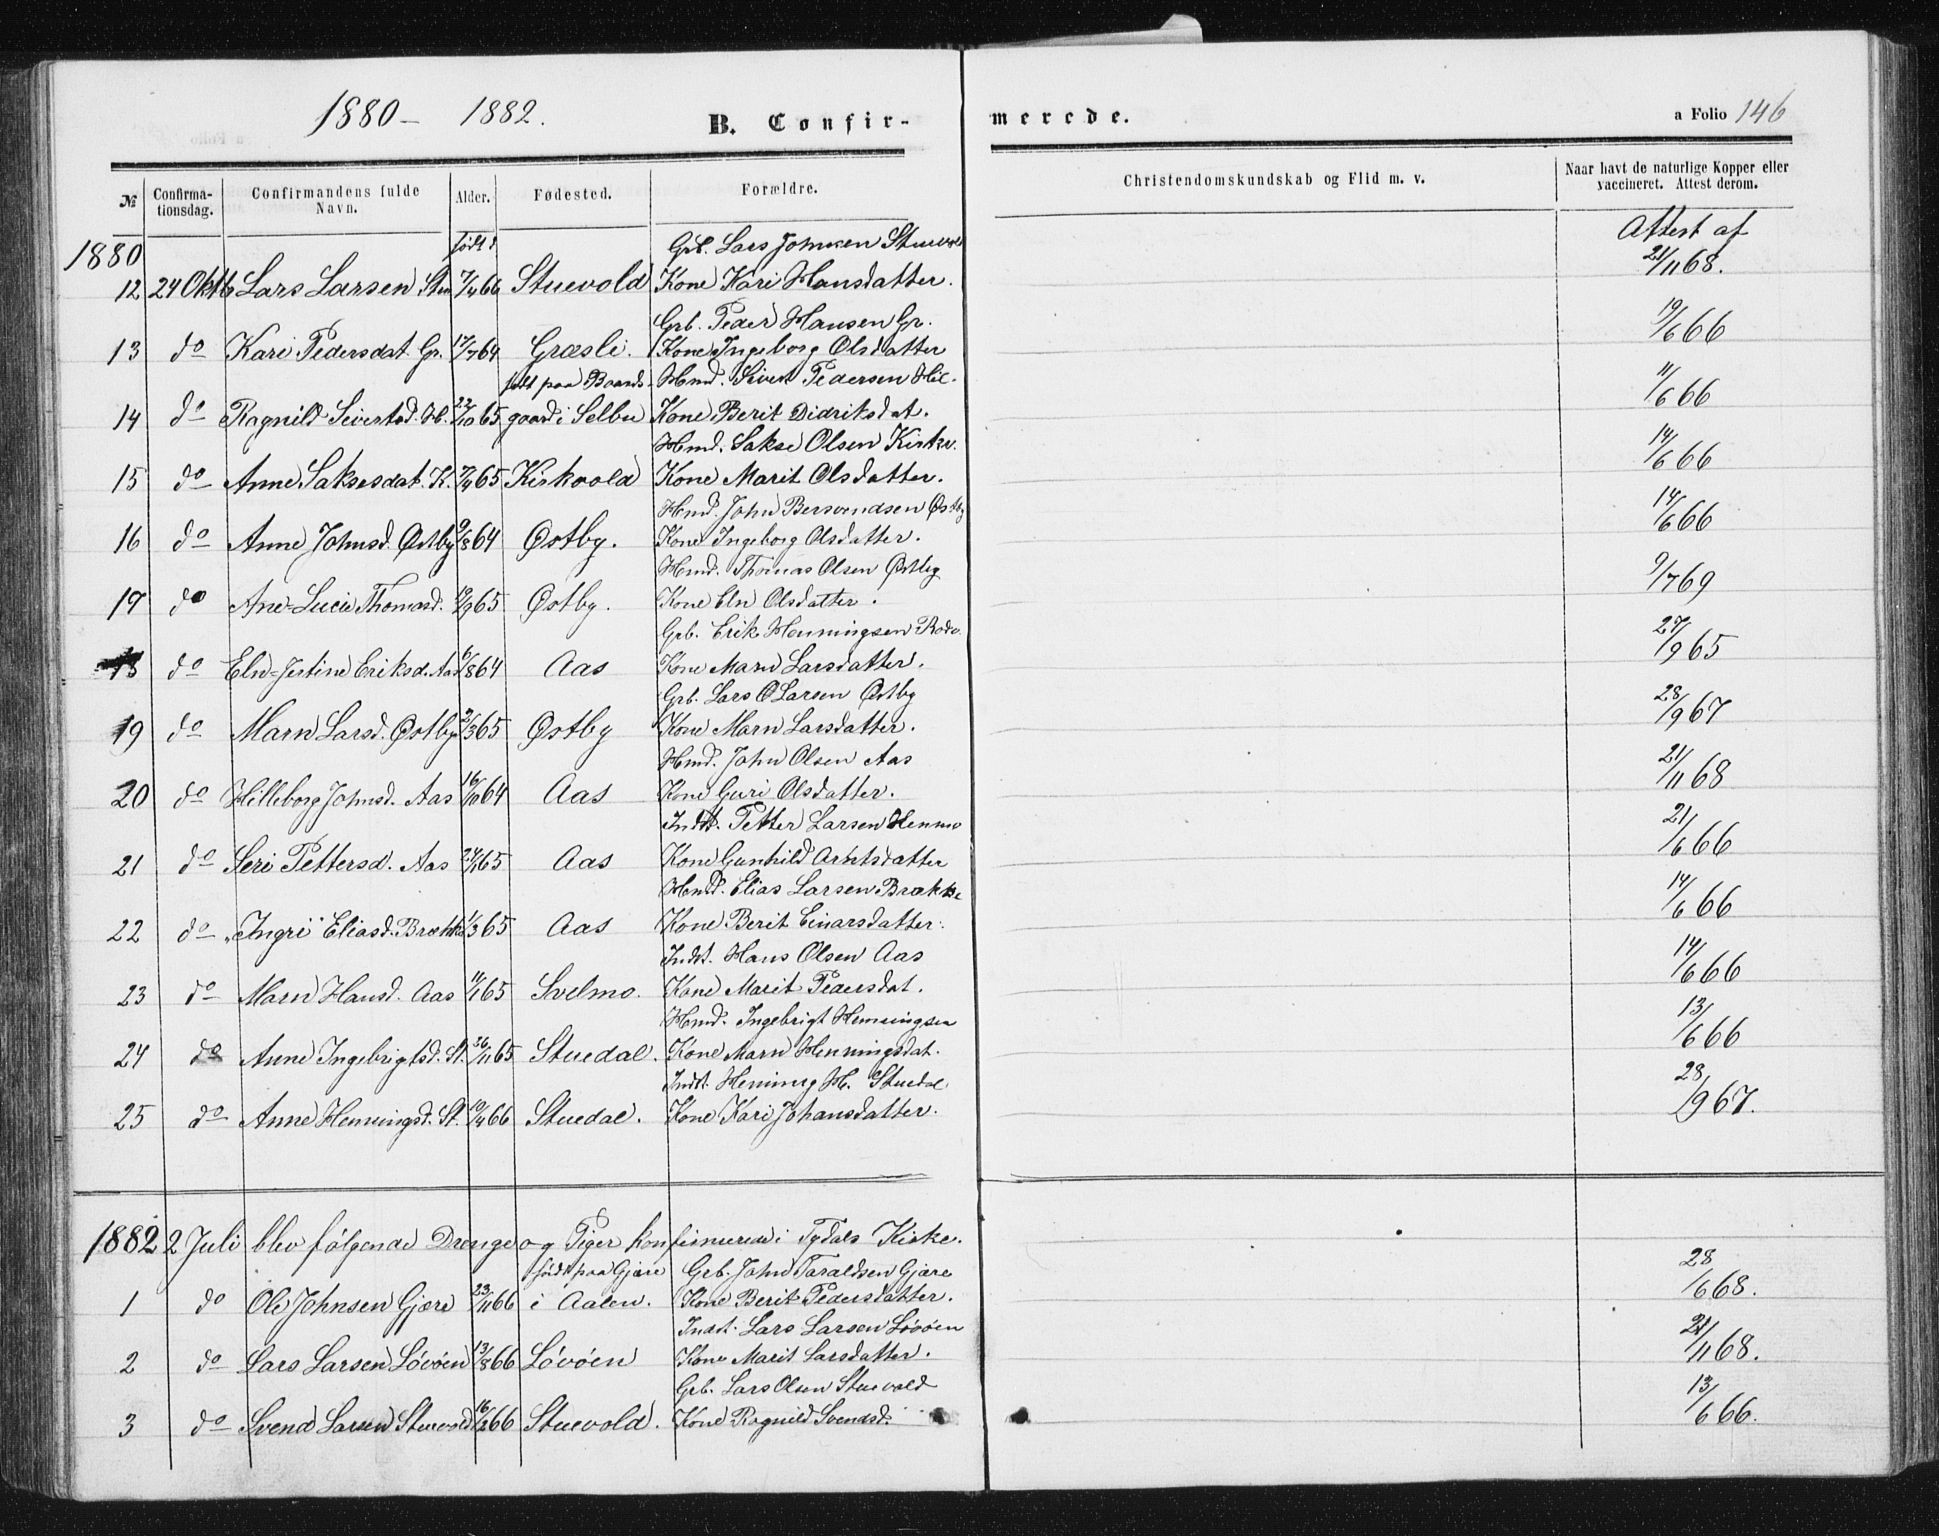 1880 – 1882.
B. Confir-
merede.
a Folio 146
№
Confirma-tionsdag.
Confirmandens fulde Navn.
Alder.
Fødested.
Forældre.
Christendomskundskab og Flid m. v.
Naar havt de naturlige Kopper eller vaccineret. Attest derom.
1880
født d
Grb. Lars Johnsen Stuevold
Attest af
12 24 Oktb Lars Larsen Stu 7/4 66 Stuevold Kone Kari Hansdatter. 21/11 68.
Grb. Peder Hansen Gr.
13 do Kari Pedersdat. Gr. 17/7 64 Græsli. Kone Ingeborg Olsdatter 19/6 66
født paa Baards- Hmd. Sivert Pedersen Hil.
14 do Ragnild Seivertsd. H. 22/10 65 gaard i Selbu Kone Berit Didriksdat. 11/6 66
Hmd. Sakse Olsen Kirkv.
15 do Anne Saksesdat. K. 7/4 65 Kirkvold Kone Marit Olsdatter. 14/6 66
Hmd. John Bersvendsen Østby
16 do Anne Johnsd. Østby 9/8 64 Østby. Kone Ingeborg Olsdatter. 14/6 66
Hmd. Thomas Olsen Østby
17 do Ane-Lucie Thomasd. 19/9 65 Østby. Kone Eln Olsdatter. 9/7 69
Grb. Erik Henningsen Rodv.
18 do Eln-Jestine Eriksd. Aas 6/8 64 Aas Kone Marn Larsdatter. 27/9 65
Grb. Lars O Larsen Østby
19 do Marn Larsd. Østby 2/3 65 Østby Kone Marn Larsdatter. 28/9 67
Hmd. John Olsen Aas
20 do Hilleborg Johnsd. Aas 16/10 64 Aas Kone Guri Olsdatter. 21/11 68
Indst. Petter Larsen Henmo
21 do Seri Pettersd. Aas 24/1 65 Aas Kone Gunhild Arntsdatter 21/6 66
Hmd. Elias Larsen Brække
22 do Ingri Eliasd. Brække 1/3 65 Aas Kone Berit Einarsdatter. 14/6 66
Indst. Hans Olsen Aas
23 do Marn Hansd. Aas 11/1 65 Svelmo. Kone Marit Pedersdat. 14/6 66
Hmd. Ingebrigt Henningsen
24 do Anne Ingebrigtsd. St. 26/11 65 Stuedal. Kone Marn Henningsdat. 13/6 66
Indst. Henning H. Stuedal
25 do Anne Henningsd. St. 10/4 66 Stuedal. Kone Kari Johansdatter. 28/9 67.
1882 2 Juli blev følgende Drenge og Piger konfirmerede i Tydals Kirke.
født paa Gjære Grb. John Taraldsen Gjære
1 do Ole Johnsen Gjære 23/11 66 i Aalen. Kone Berit Pedersdatter. 28/6 68.
Indst. Lars Larsen Løvøen
2 do Lars Larsen Løvøen 13/8 66 Løvøen Kone Marit Larsdatter. 21/11 68.
Grb. Lars Olsen Stuevold
3 do Svend Larsen Stuevold 16/2 66 Stuevold. Kone Ragnild Svendsd. 13/6 66.